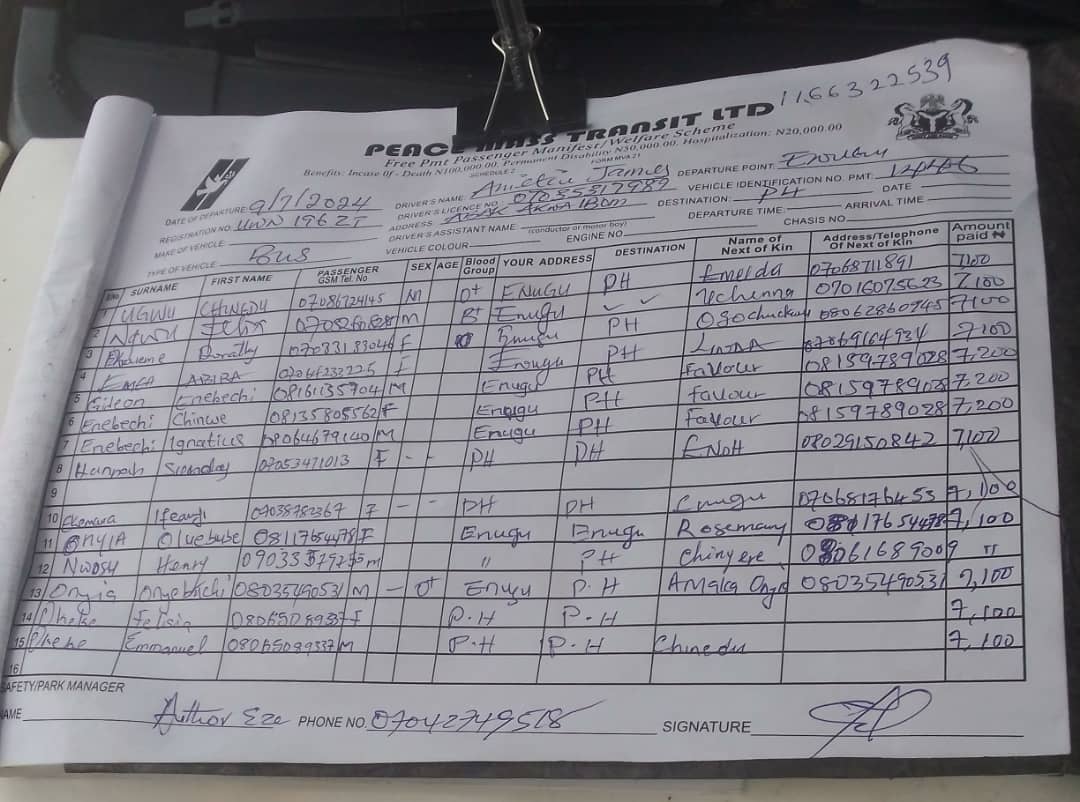 11,66322539
PEACE MASS TRANSIT LTD
Free Pmt Passenger Manifest/Welfare Scheme
Benefits: Incase Of - Death N100,000.00, Permanent Disability N50,000.00, Hospitalization: N20,000.00
SCHEDULE 2 FORM MVA 21
DATE OF DEPARTURE: 9/7/2024 DRIVER'S NAME: James DEPARTURE POINT: Enugu
REGISTRATION NO. UWN 196 ZT DRIVER'S LICENCE NO. 07055817982 VEHICLE IDENTIFICATION NO. PMT:
MAKE OF VEHICLE: ADDRESS AKWA IBOM DESTINATION: PH DATE
TYPE OF VEHICLE Bus DRIVER'S ASSISTANT NAME (conductor or motor boy) DEPARTURE TIME: ARRIVAL TIME
VEHICLE COLOUR ENGINE NO CHASIS NO
S/No SURNAME FIRST NAME PASSENGER GSM Tel. No SEX AGE Blood Group YOUR ADDRESS DESTINATION Name of Next of Kin Address/Telephone Of Next of Kin Amount paid ₦
1 UGWU CHINEDU 07086724145 M O+ ENUGU PH Emelda 07068711891 7100
2 Felix M B+ Enugu ✓ ✓ Uchenna 07016075623 7,100
3 Dorathy 07033183046 F Enugu PH 08062860945 7100
4 EMEH F Enough PH LINDA 7100
5 Gideon Enebechi 08161135704 M Enugu PH Favour 08159789028 7,200
6 Enebechi Chinwe 08135805562 F Enugu PH favour 08159789028 7,200
7 Enebechi Ignatius 08064679140 M Enugu PH Favour 08159789028 7,200
8 Hannah Sunday 07053471013 F - - PH PH ENOH 08029150842 7100
9
10 Ifeanyi 07038782367 F - - PH PH Enugu 07068176453 7,100
11 ONYIA Oluebube 08117654478 F Enugu Enugu Rosemary 08117654478 7,100
12 Nwosu Henry M " PH Chinyere 08061689009 "
13 Onyia Onyebuchi 08035490531 M - O+ Enugu P.H Amaka 08035490531 7,100
14 Felisia F P.H P.H 7,100
15 Emmanuel 08065089337 M P.H P.H Chinedu 7,100
16
SAFETY/PARK MANAGER
NAME Author Eze PHONE NO. 07042749518 SIGNATURE